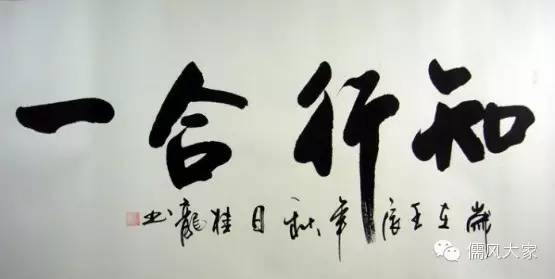 知行合一
歲在壬辰年秋日桂龍书
儒风大家